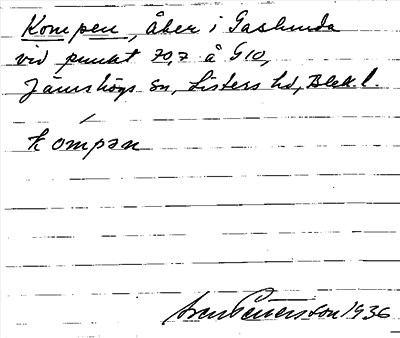 Kompen, åker i Gaslunda
vid punkt 70,7 å G10,
Jämshögs sn, Listers hd, Blek. l.
kompən
Sven Pettersson 1936